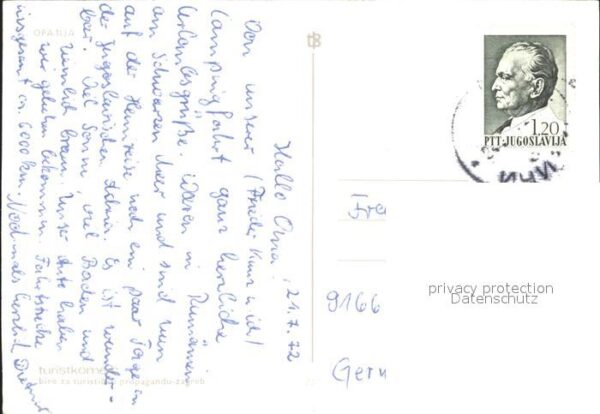 OPATIJA
Hallo Oma! 21.7.72
Von unserer (Frieder Kunz u. ich)
Campingfahrt ganz herzliche
Urlaubsgrüße. Waren in Rumänien
am Schwarzen Meer und sind nun
auf der Heimreise noch ein paar Tage in
der Jugoslavischen Adria. Es ist wunder-
bar. Viel Sonne, viel Baden und
ziemlich braun. Unser Auto haben
wir gehen bekommen. Fahrtstrecke
insgesamt ca. 6000 km. Nochmals herzlich Dietmar
1.20
PTT-JUGOSLAVIJA
Fra
9166
Germ
privacy protection
Datenschutz
turistkomerc
biro za turističku propagandu-zagreb